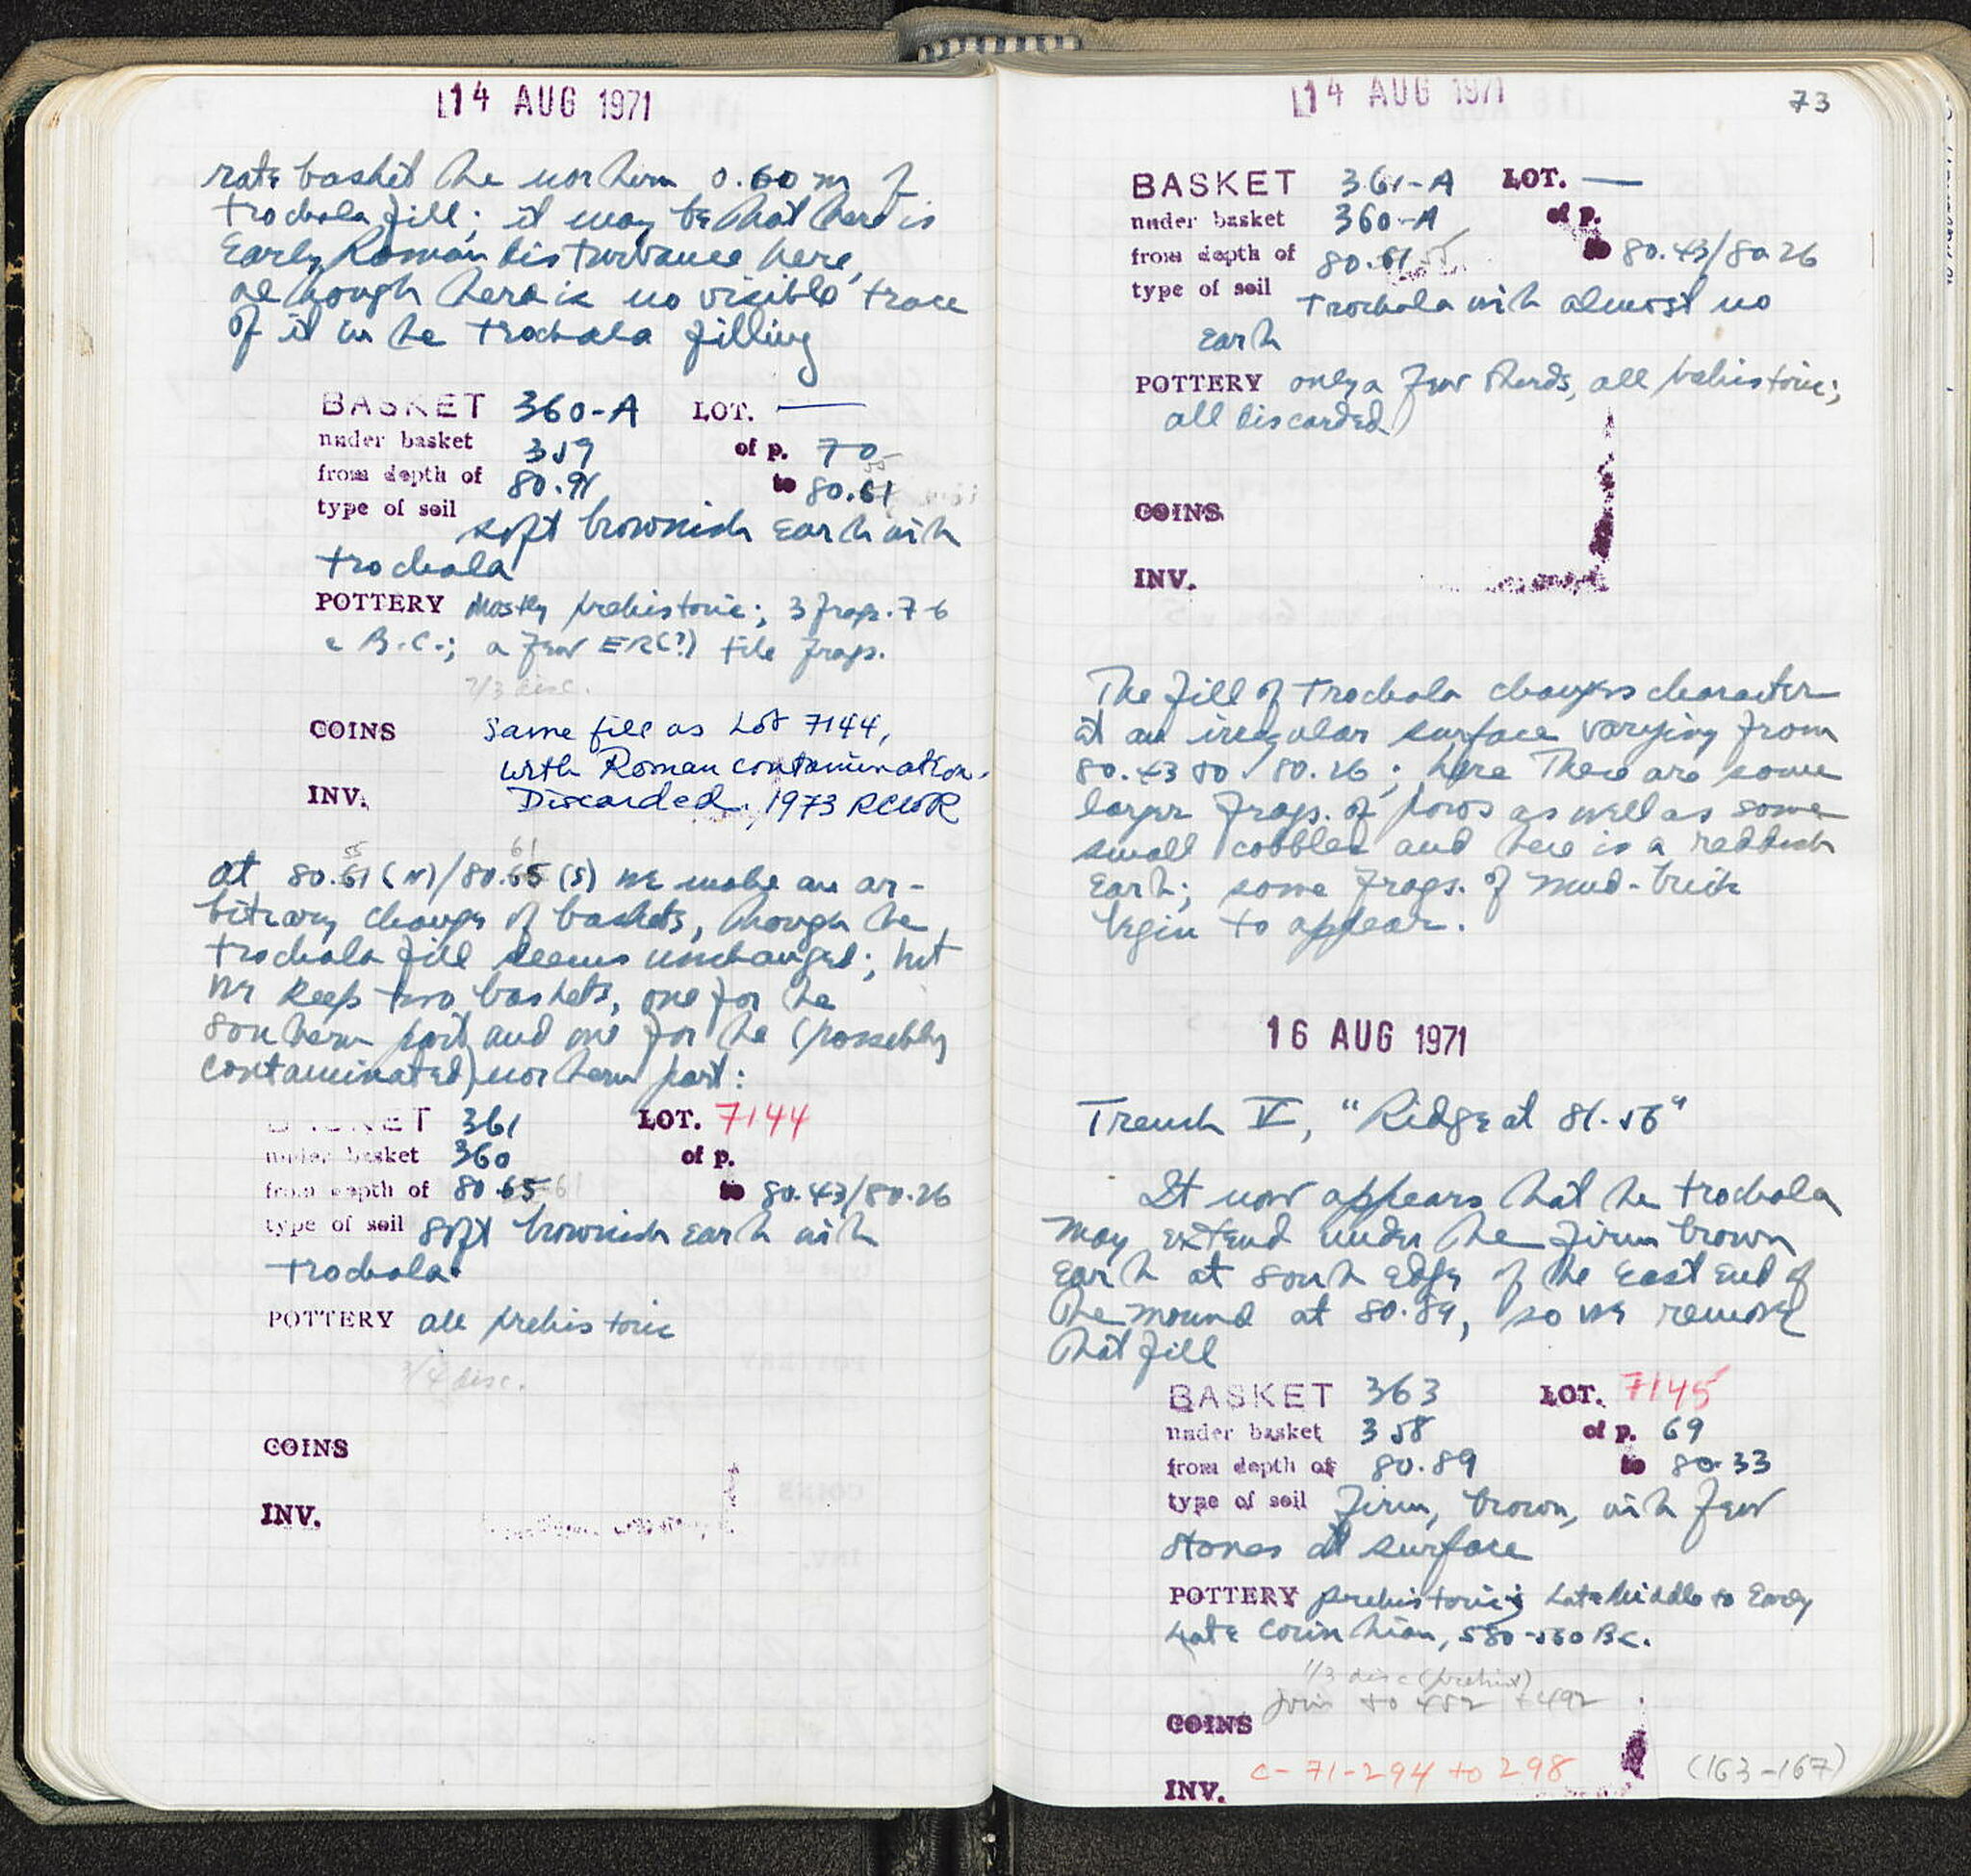 14 AUG 1971
rate basket the northern 0.60 m of
trochala fill; it may be that there is
Early Roman disturbance here,
although there is no visible trace
of it in the trochala filling
BASKET 360-A LOT. —
under basket 359 of p. 70
from depth of 80.91 to 80.61 55
type of soil soft brownish earth with
trochala
POTTERY Mostly prehistoric; 3 frags. 7-6
c B.C.; a few ER(?) tile frags.
2/3 disc.
COINS Same fill as Lot 7144,
with Roman contamination.
INV. Discarded. 1973 RCWR
55 61
At 80.61 (N)/80.65 (S) we make an ar-
bitrary change of baskets, though the
trochala fill seems unchanged; but
we keep two baskets, one for the
southern part and one for the (possibly
contaminated) northern part:
BASKET 361 LOT. 7144
under basket 360 of p.
from depth of 80.65 61 to 80.43/80.26
type of soil soft brownish earth with
trochala.
POTTERY all prehistoric
3/4 disc.
COINS
INV.
14 AUG 1971 73
BASKET 361-A LOT. —
under basket 360-A of p.
from depth of 80.61 55 to 80.43/80.26
type of soil trochala with almost no
earth
POTTERY only a few sherds, all prehistoric;
all discarded
COINS
INV.
The fill of trochala changes character
at an irregular surface varying from
80.43 to 80.26; here there are some
larger frags. of poros as well as some
small cobbles and there is a reddish
earth; some frags. of mud-brick
begin to appear.
16 AUG 1971
Trench V, "Ridge at 81.56"
It now appears that the trochala
may extend under the firm brown
earth at south edge of the east end of
the mound at 80.89, so we remove
that fill
BASKET 363 LOT. 7145
under basket 358 of p. 69
from depth of 80.89 to 80.33
type of soil firm, brown, with few
stones at surface
POTTERY prehistoric; Late Middle to Early
Late Corinthian, 580-560 B.C.
1/3 disc (prehist)
join to 482 + 492
COINS
INV. C-71-294 to 298 (163-167)